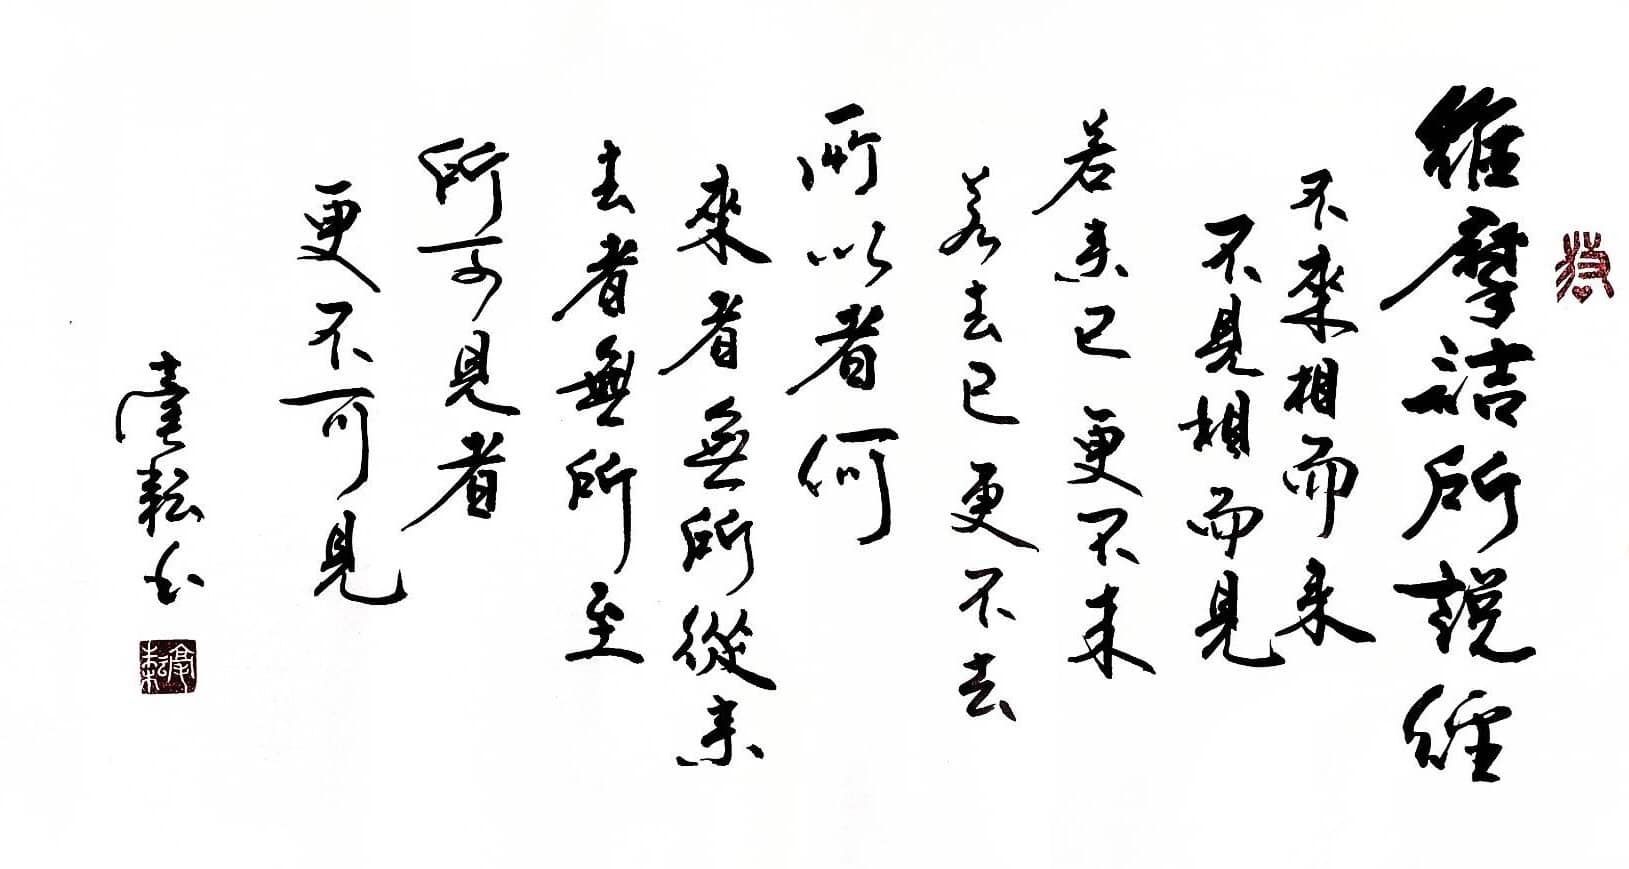 維摩詰所說經
不來相而来
不見相而見
若来已更不来
若去已更不去
所以者何
來者無所從来
去者無所至
所可見者
更不可見
耘书